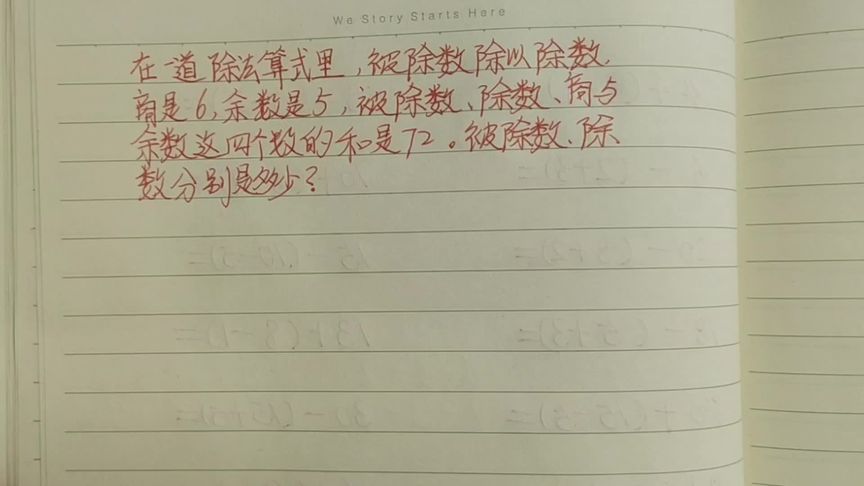 We Story Starts Here
在一道除法算式里，被除数除以除数，
商是6，余数是5，被除数、除数、商与
余数这四个数的和是72。被除数、除
数分别是多少？